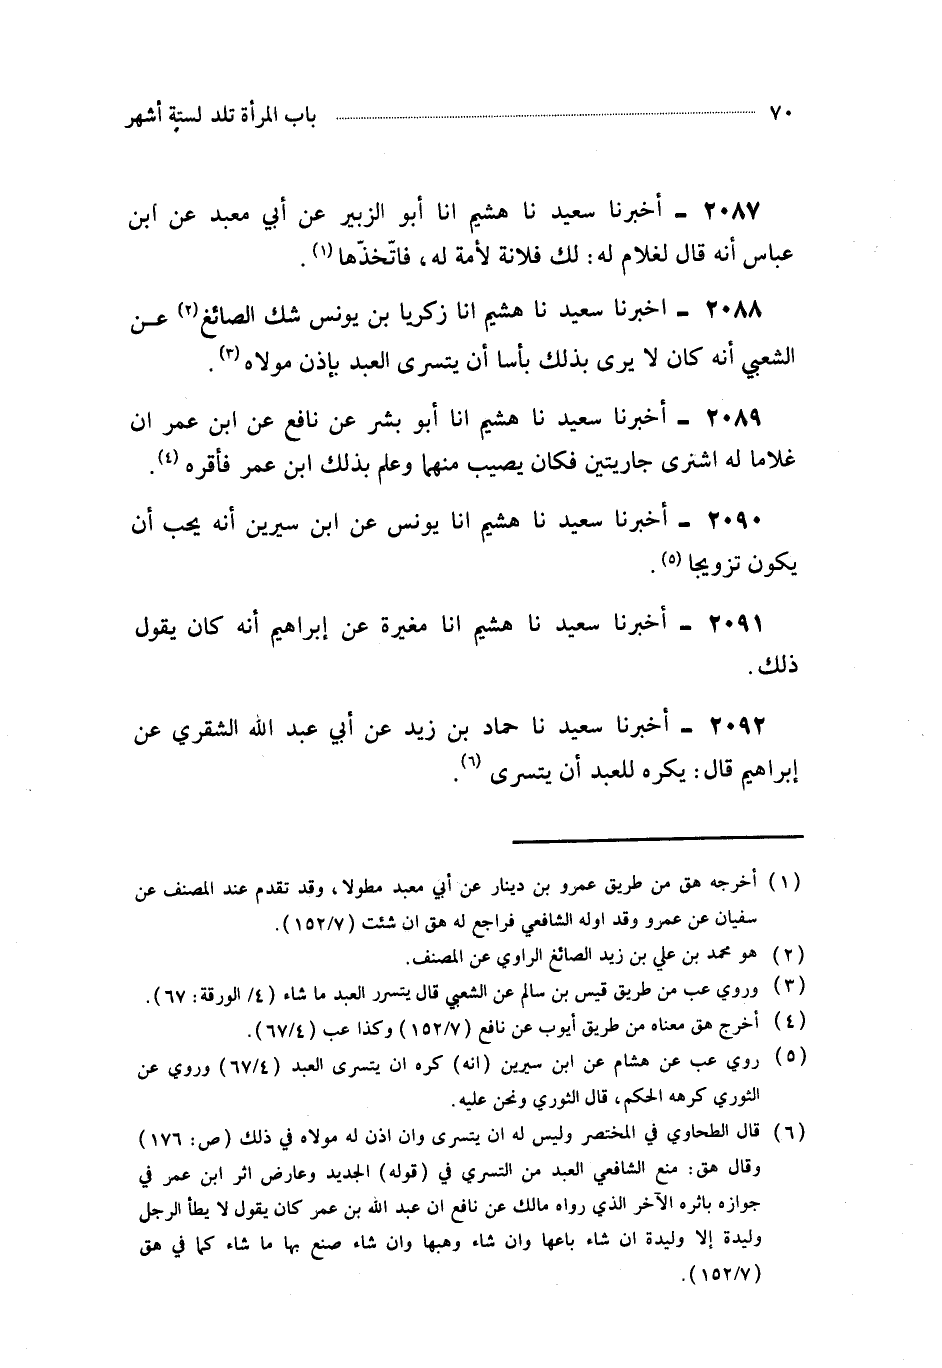 ٧٠ باب المرأة تلد لستة أشهر
٢٠٨٧ ـ أخبرنا سعيد نا هشيم انا أبو الزبير عن أبي معبد عن ابن
عباس أنه قال لغلام له: لك فلانة لأمة له، فاتّخذّها (١) .
٢٠٨٨ ـ اخبرنا سعيد نا هشيم انا زكريا بن يونس شك الصائغ (٢) عـن
الشعبي أنه كان لا يرى بذلك بأسا أن يتسرى العبد بإذن مولاه (٣) .
٢٠٨٩ ـ أخبرنا سعيد نا هشيم انا أبو بشر عن نافع عن ابن عمر ان
غلاما له اشترى جاريتين فكان يصيب منهما وعلم بذلك ابن عمر فأقره (٤) .
٢٠٩٠ ـ أخبرنا سعيد نا هشيم انا يونس عن ابن سيرين أنه يحب أن
يكون تزويجا (٥) .
٢٠٩١ ـ أخبرنا سعيد نا هشيم انا مغيرة عن إبراهيم أنه كان يقول
ذلك .
٢٠٩٢ ـ أخبرنا سعيد نا حماد بن زيد عن أبي عبد الله الشقري عن
إبراهيم قال: يكره للعبد أن يتسرى (٦) .
(١) أخرجه هق من طريق عمرو بن دينار عن أبي معبد مطولا، وقد تقدم عند المصنف عن
سفيان عن عمرو وقد اوله الشافعي فراجع له هق ان شئت (١٥٢/٧).
(٢) هو محمد بن علي بن زيد الصائغ الراوي عن المصنف.
(٣) وروي عب من طريق قيس بن سالم عن الشعبي قال يتسرر العبد ما شاء (٤/ الورقة: ٦٧).
(٤) أخرج هق معناه من طريق أيوب عن نافع (١٥٢/٧) وكذا عب (٦٧/٤).
(٥) روي عب عن هشام عن ابن سيرين (انه) كره ان يتسرى العبد (٦٧/٤) وروي عن
الثوري كرهه الحكم، قال الثوري ونحن عليه.
(٦) قال الطحاوي في المختصر وليس له ان يتسرى وان اذن له مولاه في ذلك (ص: ١٧٦)
وقال هق: منع الشافعي العبد من التسري في (قوله) الجديد وعارض اثر ابن عمر في
جوازه باثره الآخر الذي رواه مالك عن نافع ان عبد الله بن عمر كان يقول لا يطأ الرجل
وليدة إلا وليدة ان شاء باعها وان شاء وهبها وان شاء صنع بها ما شاء كما في هق
(١٥٢/٧).